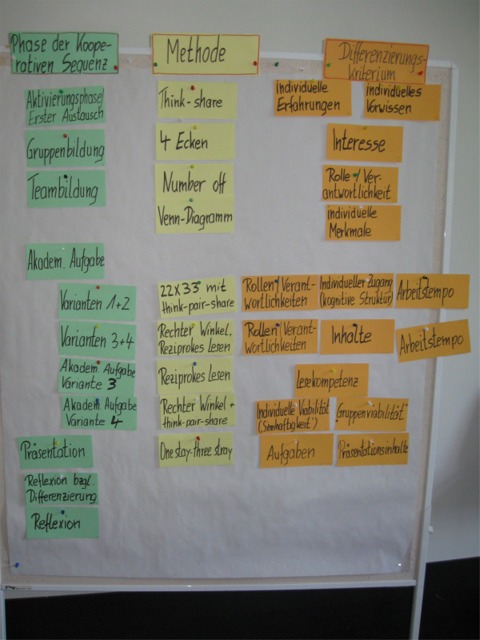 Phase der Koope-
rativen Sequenz
Methode
Differenzierungs-
kriterium
Aktivierungsphase/
Erster Austausch
Think-share
Individuelle
Erfahrungen
individuelles
Vorwissen
Gruppenbildung
4 Ecken
Interesse
Teambildung
Number off
Venn-Diagramm
Rolle/Ver-
antwortlichkeit
individuelle
Merkmale
Akadem. Aufgabe
Varianten 1+2
22x33 mit
think-pair-share
Rollen/Verant-
wortlichkeiten
Individueller Zugang
(kognitive Struktur)
Arbeitstempo
Varianten 3+4
Rechter Winkel.
Reziprokes Lesen
Rollen/Verant-
wortlichkeiten
Inhalte
Arbeitstempo
Akadem. Aufgabe
Variante 3
Reziprokes Lesen
Lesekompetenz
Akadem. Aufgabe
Variante 4
Rechter Winkel +
think-pair-share
Individuelle Viabilität
(Sinnhaftigkeit)
Gruppenviabilität
Präsentation
One stay-three stray
Aufgaben
Präsentationsinhalte
Reflexion bzgl.
Differenzierung
Reflexion